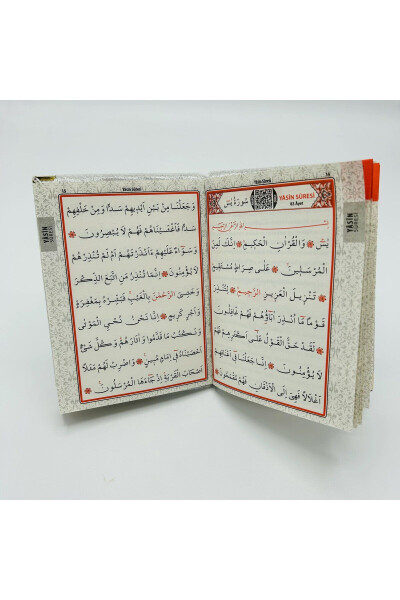 14
Yâsîn Sûresi
سُورَةُ يٰسٓ
YÂSÎN SÛRESİ
83 Âyet
يٰسٓ ﴿﴾ وَالْقُرْاٰنِ الْحَك۪يمِ ﴿﴾ اِنَّكَ لَمِنَ
الْمُرْسَل۪ينَ ﴿﴾ عَلٰى صِرَاطٍ مُسْتَق۪يمٍ
﴿﴾ تَنْز۪يلَ الْعَز۪يزِ الرَّح۪يمِ ﴿﴾ لِتُنْذِرَ
قَوْمًا مَٓا اُنْذِرَ اٰبَٓاؤُ۬هُمْ فَهُمْ غَافِلُونَ
﴿﴾ لَقَدْ حَقَّ الْقَوْلُ عَلٰٓى اَكْثَرِهِمْ فَهُمْ
لَا يُؤْمِنُونَ ﴿﴾ اِنَّا جَعَلْنَا ف۪ٓي اَعْنَاقِهِمْ
اَغْلَالًا فَهِيَ اِلَى الْاَذْقَانِ فَهُمْ مُقْمَحُونَ ﴿﴾
YÂSÎN
SÛRESİ
Yâsîn Sûresi
وَجَعَلْنَا مِنْ بَيْنِ اَيْد۪يهِمْ سَدًّا وَمِنْ خَلْفِهِمْ
سَدًّا فَاَغْشَيْنَاهُمْ فَهُمْ لَا يُبْصِرُونَ ﴿﴾
وَسَوَٓاءٌ عَلَيْهِمْ ءَاَنْذَرْتَهُمْ اَمْ لَمْ تُنْذِرْهُمْ
لَا يُؤْمِنُونَ ﴿﴾ اِنَّمَا تُنْذِرُ مَنِ اتَّبَعَ الذِّكْرَ
وَخَشِيَ الرَّحْمٰنَ بِالْغَيْبِ فَبَشِّرْهُ بِمَغْفِرَةٍ
وَاَجْرٍ كَر۪يمٍ ﴿﴾ اِنَّا نَحْنُ نُحْيِ الْمَوْتٰى
وَنَكْتُبُ مَا قَدَّمُوا وَاٰثَارَهُمْ وَكُلَّ شَيْءٍ
اَحْصَيْنَاهُ ف۪ٓي اِمَامٍ مُب۪ينٍ ﴿﴾ وَاضْرِبْ لَهُمْ مَثَلًا
اَصْحَابَ الْقَرْيَةِ اِذْ جَٓاءَهَا الْمُرْسَلُونَ ﴿﴾